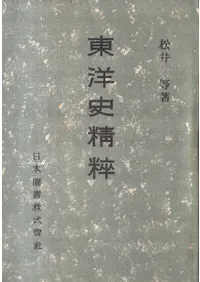 松井 等著
東洋史精粹
日本圖書株式會社